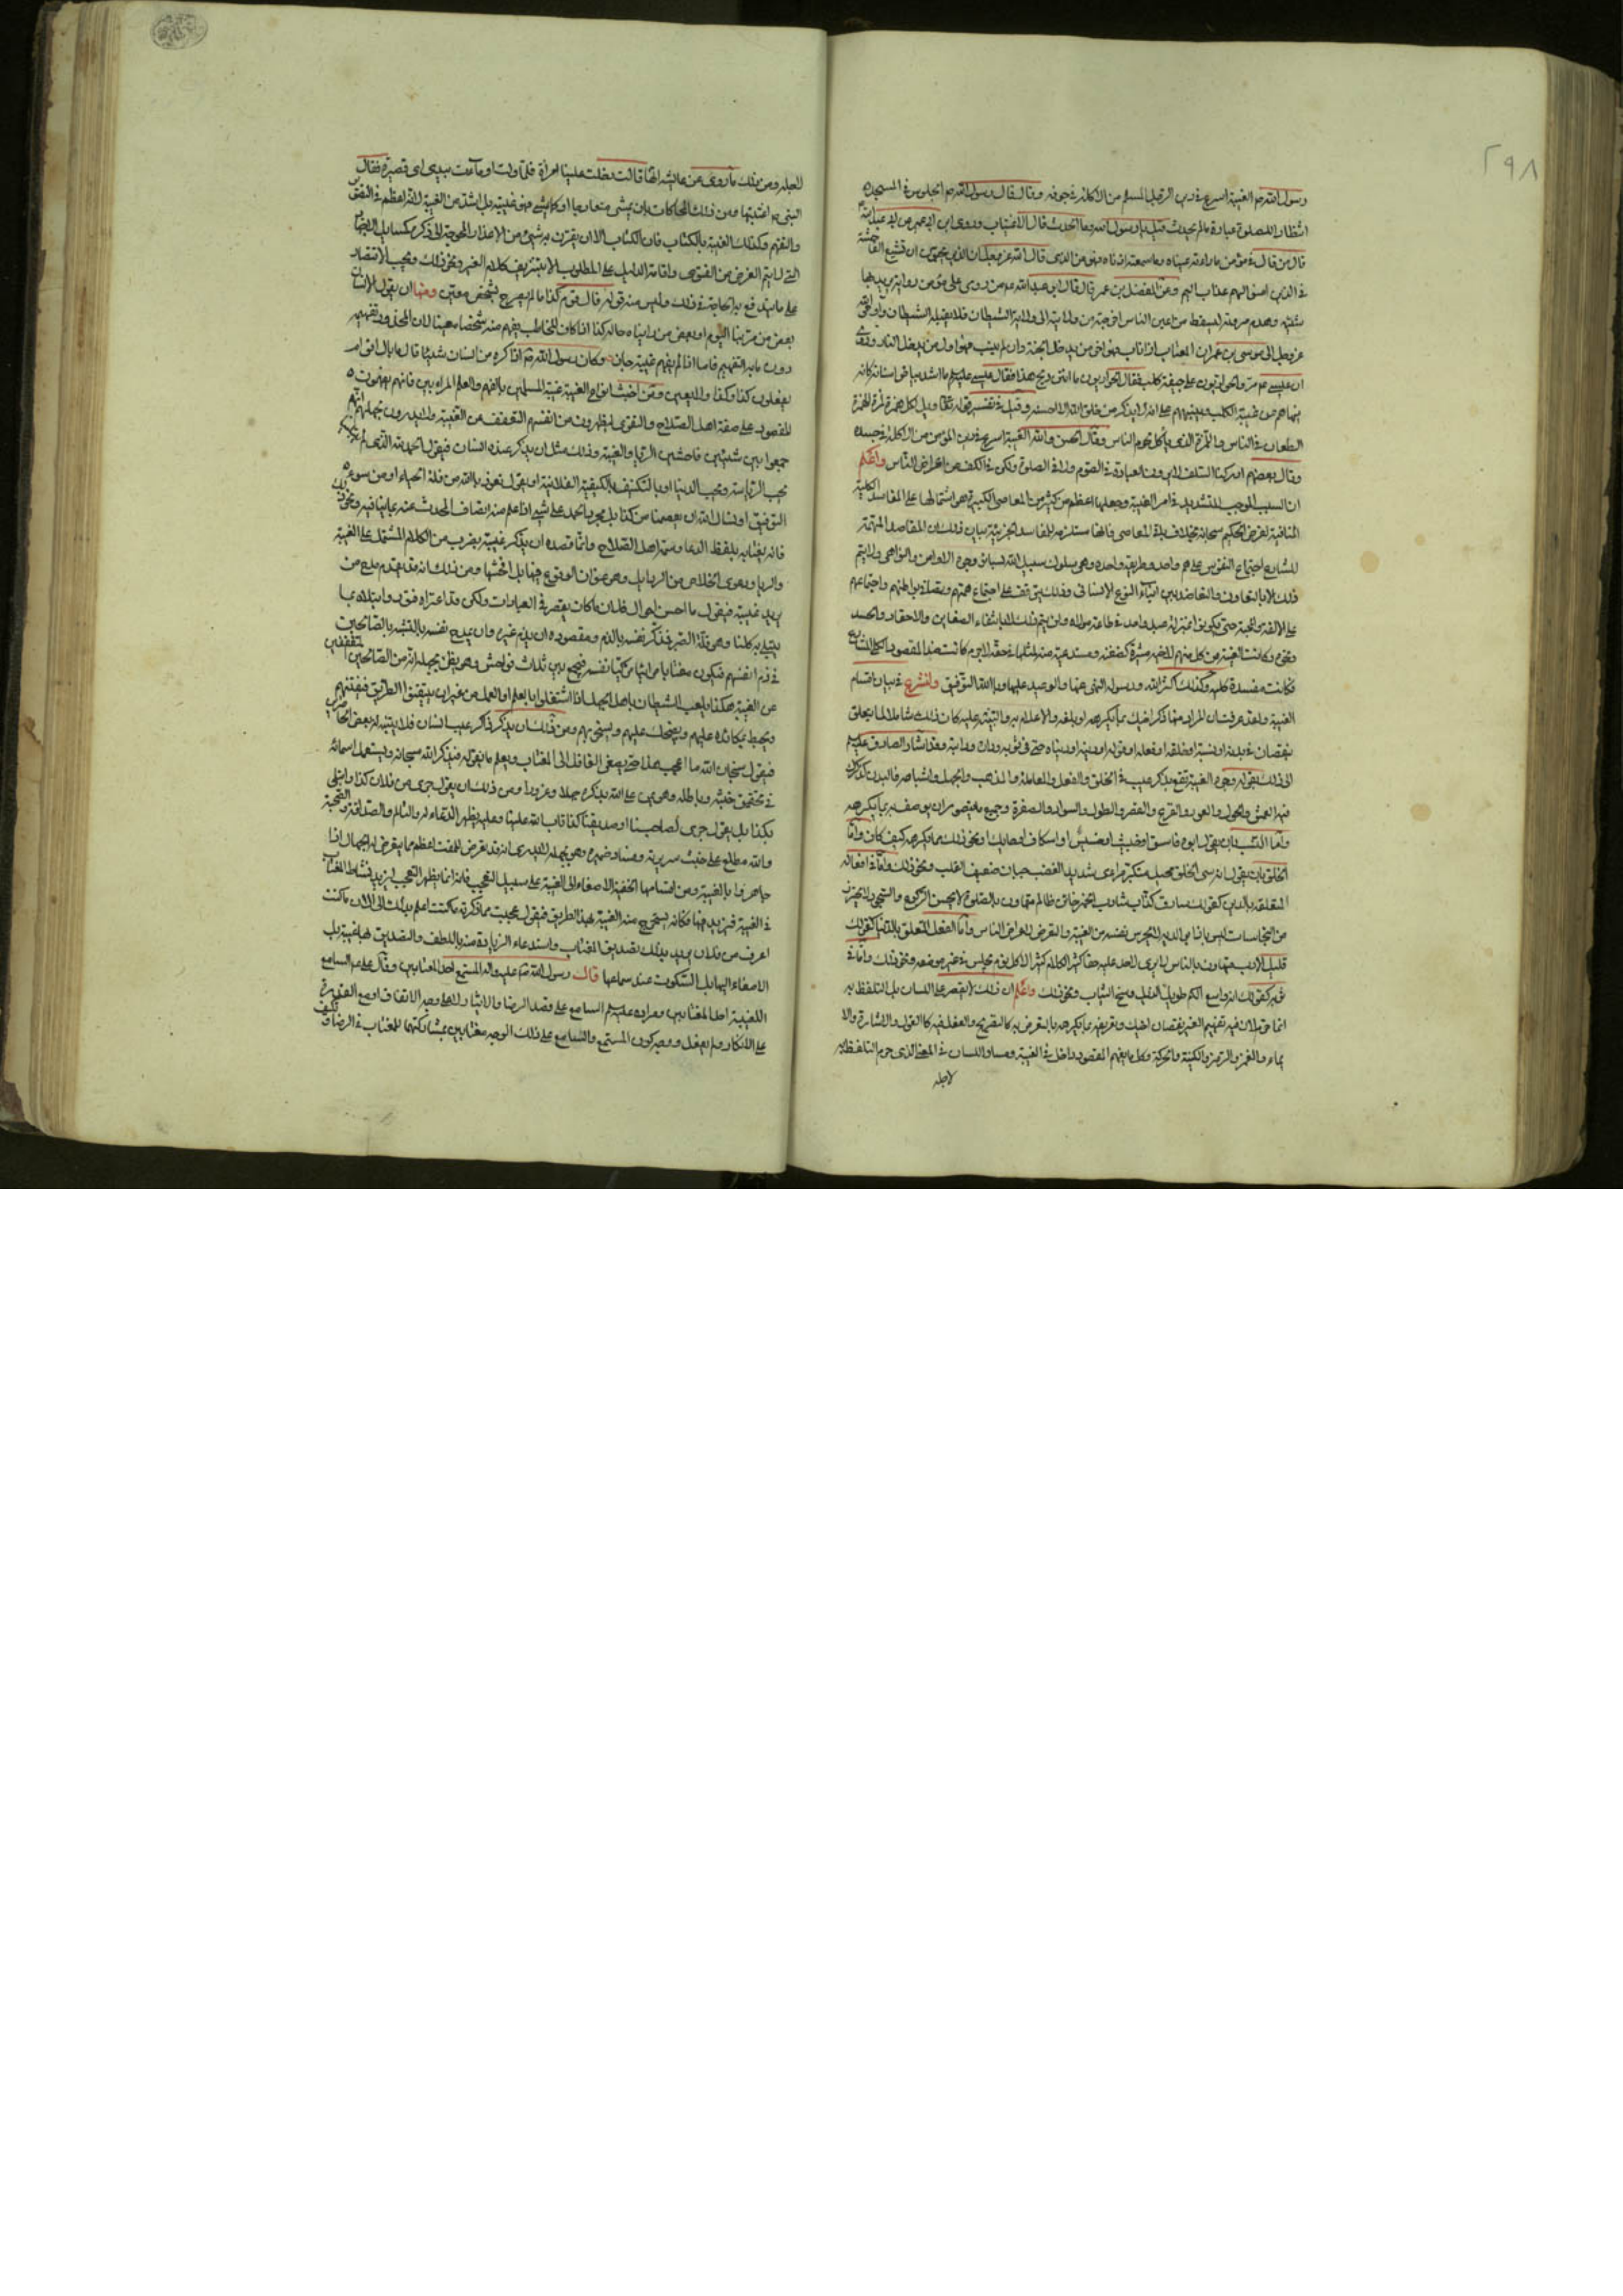 ٢٩٨
رسول الله ص الغيبة اسرع في دين الرجل المسلم من الاكلة في جوفه وقال قال رسول الله ص الجلوس في المسجد
انتظار الصلوة عبادة ما لم يحدث قيل يا رسول الله وما الحدث قال الاغتياب وروى ابن ابي عمير عن ابي عبد الله
قال من قال في مؤمن ما راته عيناه وما سمعته اذناه فهو من الذين قال الله عز وجل ان الذين يحبون ان تشيع الفاحشة
في الذين امنوا لهم عذاب اليم وعن المفضل بن عمر قال قال ابو عبد الله ع من روى على مؤمن رواية يريد بها
شينه وهدم مروته ليسقط من اعين الناس اخرجه من ولايته الى ولاية الشيطان فلا يقبله الشيطان واوحى الله
عز وجل الى موسى بن عمران ان المغتاب اذا تاب فهو اخر من يدخل الجنة وان لم يتب فهو اول من يدخل النار وروى
ان عيسى ع مر والحواريون على جيفة كلب فقال الحواريون ما انتن ريح هذا فقال عيسى عليه السلم ما اشد بياض اسنانه كانه
ينهاهم عن غيبة الكلب وينبههم على انه لا يذكر من خلق الله الا احسنه وقيل في تفسير قوله تعالى ويل لكل همزة لمزة الهمزة
الطعان في الناس واللمزة الذي ياكل لحوم الناس وقال الحسن والله الغيبة اسرع في دين المؤمن من الاكلة في جسده
وقال بعضهم ادركنا السلف لا يرون العبادة في الصوم ولا في الصلوة ولكن في الكف عن اعراض الناس واعلم
ان السبب الموجب للتشديد في امر الغيبة وجعلها اعظم من كثير من المعاصي الكبيرة هو اشتمالها على المفاسد الكلية
المنافية لغرض الحكيم سبحانه بخلاف باقي المعاصي فانها مستلزمة لمفاسد جزئية بيان ذلك ان المقاصد المهمة
للشارع اجتماع النفوس على هم واحد وطريقة واحدة وهي سلوك سبيل الله بسائر وجوه الاوامر والنواهي ولا يتم
ذلك الا بالتعاون والتعاضد بين ابناء النوع الانساني وذلك يتوقف على اجتماع هممهم وتصافي بواطنهم واجتماعهم
على الالفة والمحبة حتى يكونوا بمنزلة عبد واحد في طاعة مولاه ولن يتم ذلك الا بانتفاء الضغاين والاحقاد والحسد
ونحوه وكانت الغيبة من كل منهم لاخيه مثيرة لضغنه ومستدعية منه لمثلها في حقه لاجرم كانت ضد المقصود الكلي للشارع
فكانت مفسدة كلية وكذلك اكثر الله ورسوله النهي عنها والوعيد عليها وبالله التوفيق ولنشرع في بيان اقسام
الغيبة ولقد عرفت ان المراد منها ذكر اخيك بما يكرهه لو بلغه والاعلام به والتنبيه عليه كان ذلك شاملا لما يتعلق
بنقصان في بدنه او نسبه او خلقه او فعله او قوله او دينه او دنياه حتى في ثوبه وداره ودابته وقد اشار الصادق عليه السلم
الى ذلك بقوله وجوه الغيبة تقع بذكر عيب في الخلق والفعل والمعاملة والمذهب والجهل واشباهه فالبدن كذكرك
فيه العمش والحول والعور والقرع والقصر والطول والسواد والصفرة وجميع ما يتصور ان يوصف به مما يكرهه
واما النسب بان يقول ابوه فاسق او خبيث او خسيس او اسكاف او حايك او نحو ذلك مما يكرهه كيف كان واما
الخلق بان يقول انه سيئ الخلق بخيل متكبر مرائي شديد الغضب جبان ضعيف القلب ونحو ذلك واما في افعاله
المتعلقة بالدين كقولك سارق كذاب شارب الخمر خائن ظالم متهاون بالصلوة لا يحسن الركوع والسجود لا يحترز
من النجاسات ليس بارا بوالديه لا يحرس نفسه من الغيبة والتعرض لاعراض الناس واما الفعل المتعلق بالدنيا كقولك
قليل الادب متهاون بالناس لا يرى لاحد عليه حقا كثير الكلام كثير الاكل نؤم يجلس في غير موضعه ونحو ذلك واما في
ثوبه كقولك انه واسع الكم طويل الذيل وسخ الثياب ونحو ذلك واعلم ان ذلك لا يقصر على اللسان بل التلفظ به
انما حرم لان فيه تفهيم الغير نقصان اخيك وتعريفه بما يكرهه فالتعريض به كالتصريح والفعل فيه كالقول والاشارة والا
يماء والغمز والرمز والكتبة والحركة وكل ما يفهم المقصود داخل في الغيبة ومساو اللسان في المعنى الذي حرم التلفظ به
لاجله
لاجله ومن ذلك ما روى عن عايشة انها قالت دخلت علينا امراة فلما ولت اومات بيدي اي قصيرة فقال
النبي ص اغتبتها ومن ذلك المحاكات بان يمشي متعارجا او كما يمشي فهو غيبة بل اشد من الغيبة لانه اعظم في التصوير
والتفهيم وكذلك الغيبة بالكتاب فان الكتاب الا ان يقترن به شيء من الاعذار المحوجة الى ذكره كمسايل الاجتهاد
التي لا يتم الغرض من الفتوى واقامة الدليل على المطلوب الا بتزييف كلام الغير ونحو ذلك ويجب الاقتصار
على ما يندفع به الحاجة في ذلك وليس منه قوله قال قوم كذا ما لم يصرح بشخص معين ومنها ان يقول الانسان
بعض من مر بنا اليوم او بعض من رايناه حاله كذا اذا كان المخاطب يفهم منه شخصا معينا لان المحذور تفهيمه
دون ما به التفهيم فاما اذا لم يفهم عينه جاز وكان رسول الله ص اذا كره من انسان شيئا قال ما بال اقوام
يفعلون كذا وكذا ولا يعين ومن اخبث انواع الغيبة غيبة المتسمين بالفهم والعلم المرائين فانهم يفهمون
المقصود على صفة اهل الصلاح والتقوى ليظهروا من انفسهم التعفف عن الغيبة ولا يدرون بجهلهم انهم
جمعوا بين شيئين فاحشين الريا والغيبة وذلك مثل ان يذكر عنده انسان فيقول الحمد لله الذي لم
بحب الرياسة وحب الدنيا او بالتكيف بالكيفية الفلانية او يقول نعوذ بالله من قلة الحياء او من سوء
التوفيق او نسال الله ان يعصمنا من كذا بل مجرد الحمد على شيء اذا علم منه اتصاف المحدث عنه بما ينافيه ونحو ذلك
فانه يغتابه بلفظ الدعا وسمت اهل الصلاح وانما قصده ان يذكر عيبه بضرب من الكلام المشتمل على الغيبة
والريا ودعوى الخلاص من الرذايل وهو عنوان الوقوع فيها بل افحشها ومن ذلك انه قد يقدم مدح من
يريد غيبته فيقول ما احسن احوال فلان ما كان يقصر في العبادات ولكن قد اعتراه فتور وابتلاء بما
يبتلى به كلنا وهو قلة الصبر فيذكر نفسه بالذم ومقصوده ان يذم غيره وان يمدح نفسه بالتشبه بالصالحين
في ذم انفسهم فيكون مغتابا مرائيا مزكيا نفسه فيجمع بين ثلاث فواحش وهو يظن بجهله انه من الصالحين المتعففين
عن الغيبة هكذا يلعب الشيطان باهل الجهل اذا اشتغلوا بالعلم او العمل من غير ان يتيقنوا الطريق فيفتنهم
ويحبط بمكائده عليهم ويضحك عليهم ويسخر بهم ومن ذلك ان يذكر ذاكر عيب انسان فلا يتنبه له بعض الحاضرين
فيقول سبحان الله ما اعجب هذا حتى يصغي الغافل الى المغتاب ويعلم ما يقوله فيذكر الله سبحانه ويستعمل اسمائه
في تحقيق خبثه وباطله وهو يمن على الله بذكره جهلا وغرورا ومن ذلك ان يقول جرى من فلان كذا وابتلى
بكذا بل يقول جرى لصاحبنا او صديقنا كذا تاب الله علينا وعليه يظهر الدعاء له والتالم والصداقة والصحبة
والله مطلع على خبث سريرته وفساد ضميره وهو بجهله لا يدري انه قد تعرض لمقت اعظم مما يتعرض له الجهال اذا
جاهروا بالغيبة ومن اقسامها الخفية الاصغاء الى الغيبة على سبيل التعجب فانه انما يظهر التعجب ليزيد نشاط المغتاب
في الغيبة فيزيد فيها فكانه يستخرج منه الغيبة بهذا الطريق فيقول عجبت مما ذكرته ما كنت اعلم بذلك الى الان ما كنت
اعرف من فلان يريد بذلك تصديق المغتاب واستدعاء الزيادة منه باللطف والتصديق لها غيبة بل
الاصغاء اليها بل السكوت عند سماعها قال رسول الله صلى الله عليه واله المستمع احد المغتابين وقال علي ع السامع
للغيبة احد المغتابين ومراده عليه السلم السامع على قصد الرضا والايثار لا على وجه الاتفاق او مع القدرة
على الانكار ولم يفعل ووجه كون المستمع والسامع على ذلك الوجه مغتابين مشاركتهما للمغتاب في الرضا وتكيف